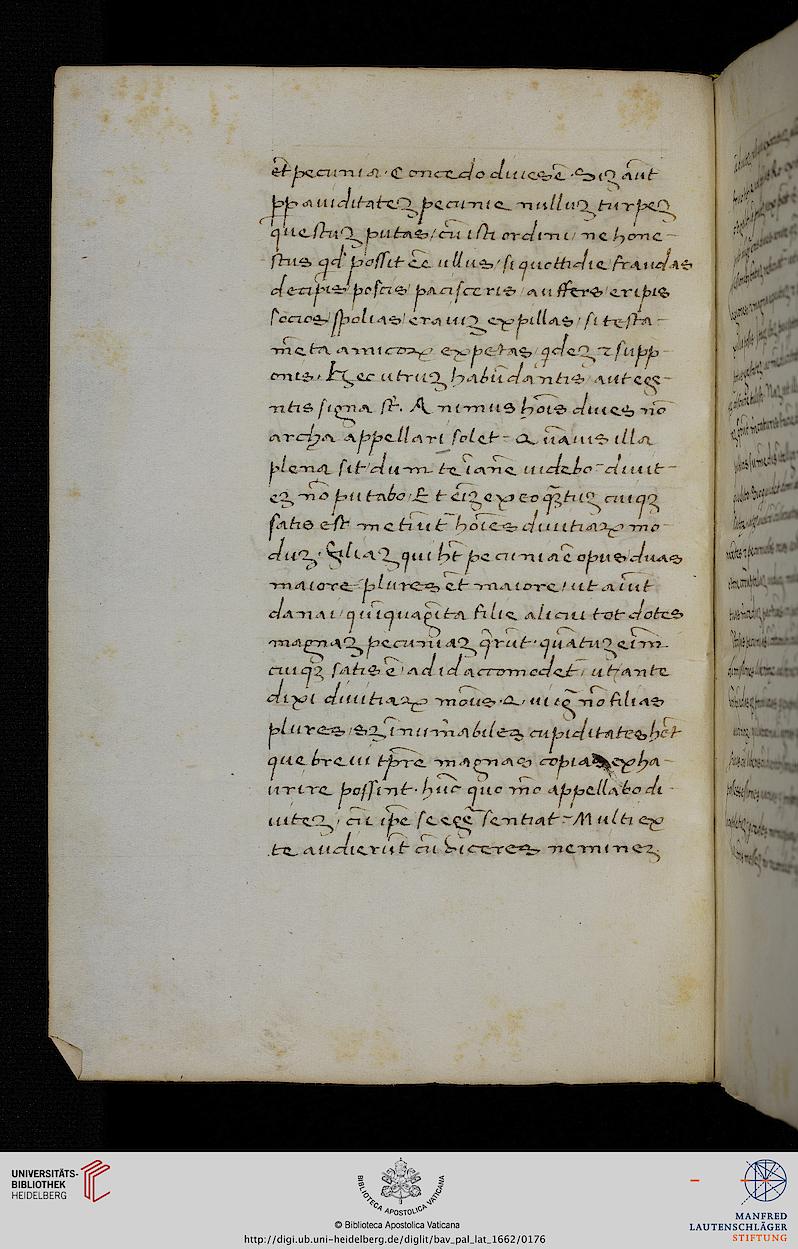 et̄ pecunia · Concedo diues ē · Siꝫ aut̄
ꝓꝑ auiditateꝫ pecunie nulluꝫ turpeꝫ
questuꝫ putas / cū isti ordini / ne hone-
stus qd' possit eē ullus / si quottidie fraudas
decipis poscis pacisceris / auffers eripis
socios / spolias / erariuꝫ expillas / si testa-
mēta amicoꝝ expetas
onis · Hec utruꝫ habūdantis / aut ege-
ntis signa st̄ · Animus hoīs diues nō
archa appellari solet - Quāuis illa
plena sit / dum te īanē uidebo - diuit-
eꝫ nō putabo / Et eīꝫ ex eo quꝫtuꝫ cuiqꝫ
satis est metiūt̄ hoīes diuitiaꝝ mo-
duꝫ · Filiaꝫ qui ht̄ pecunia ē opus / duas
maiore / plures et̄ maiore / ut aiūt
danai / quīquagīta filie alicui tot dotes
magnaꝫ pecuniaꝫ q̄rūt · quātuꝫ eīm
cuiqꝫ satis ē / ad id accomodet̄ / ut ante
dixi diuitiaꝝ modus · Q, ui ḡ nō filias
plures / sꝫ īnumābiles cupiditates hēt
que breui tp̄re magnas copias exha-
urire possint · hūc quo mō appellabo di-
uiteꝫ / cū ip̄e se egē sentiat - Multi ex
te audierūt cū diceres nemineꝫ
UNIVERSITÄTS-
BIBLIOTHEK
HEIDELBERG
BIBLIOTECA APOSTOLICA VATICANA
© Biblioteca Apostolica Vaticana
http://digi.ub.uni-heidelberg.de/diglit/bav_pal_lat_1662/0176
MANFRED
LAUTENSCHLÄGER
STIFTUNG